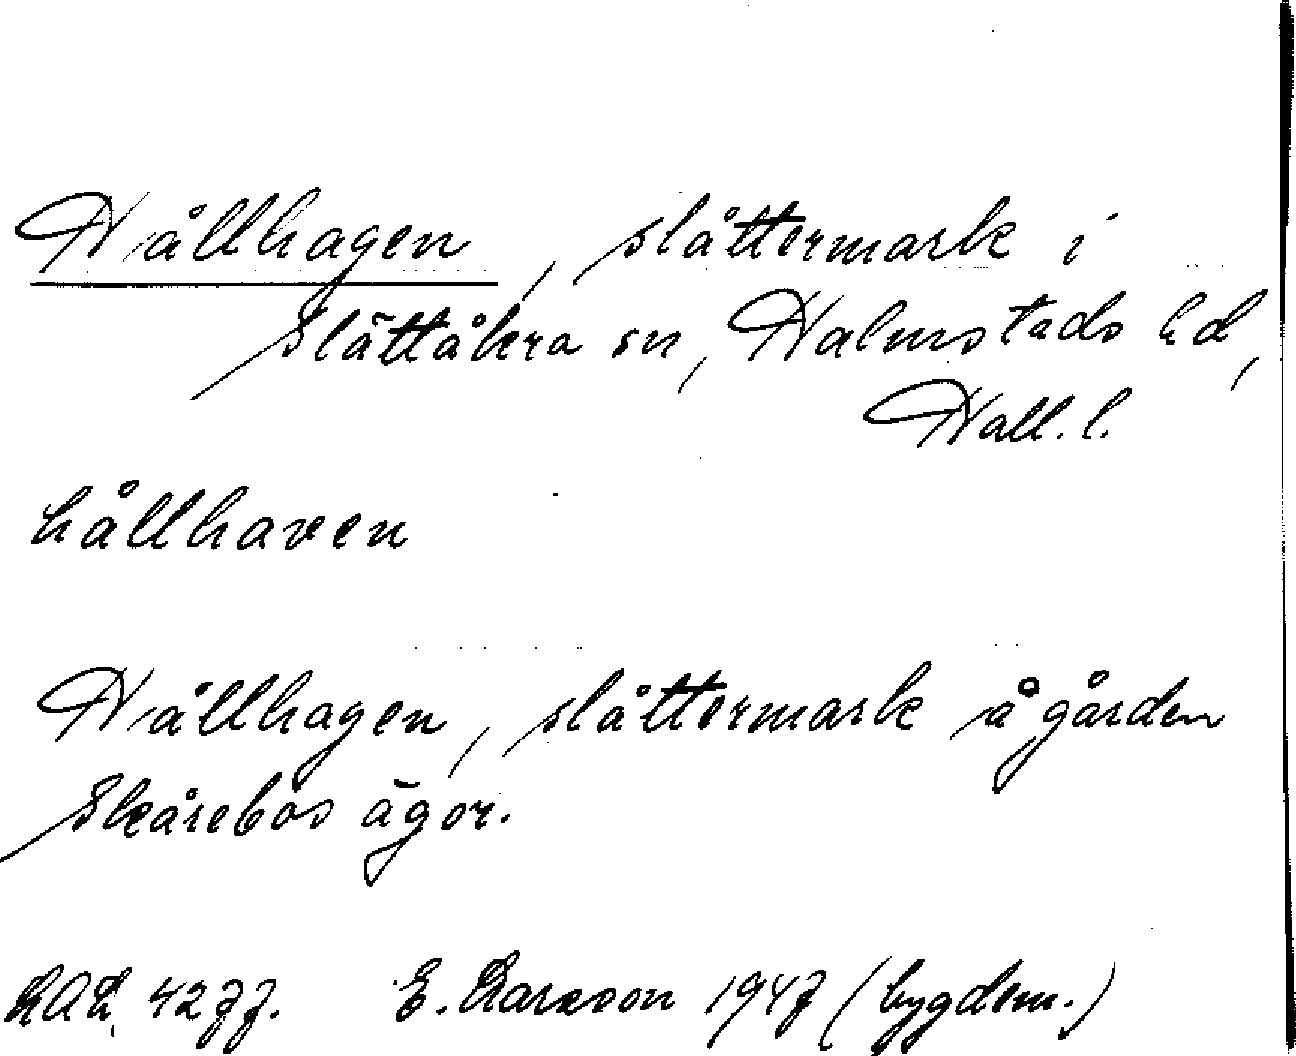 Hållhagen, slåttermark i
Slättåkra sn, Halmstads hd,
Hall. l.
hållhaven
Hållhagen, slåttermark å gården
Skårebos ägor.
LAL 4277. E. Larsson 1947 (bygdem.)